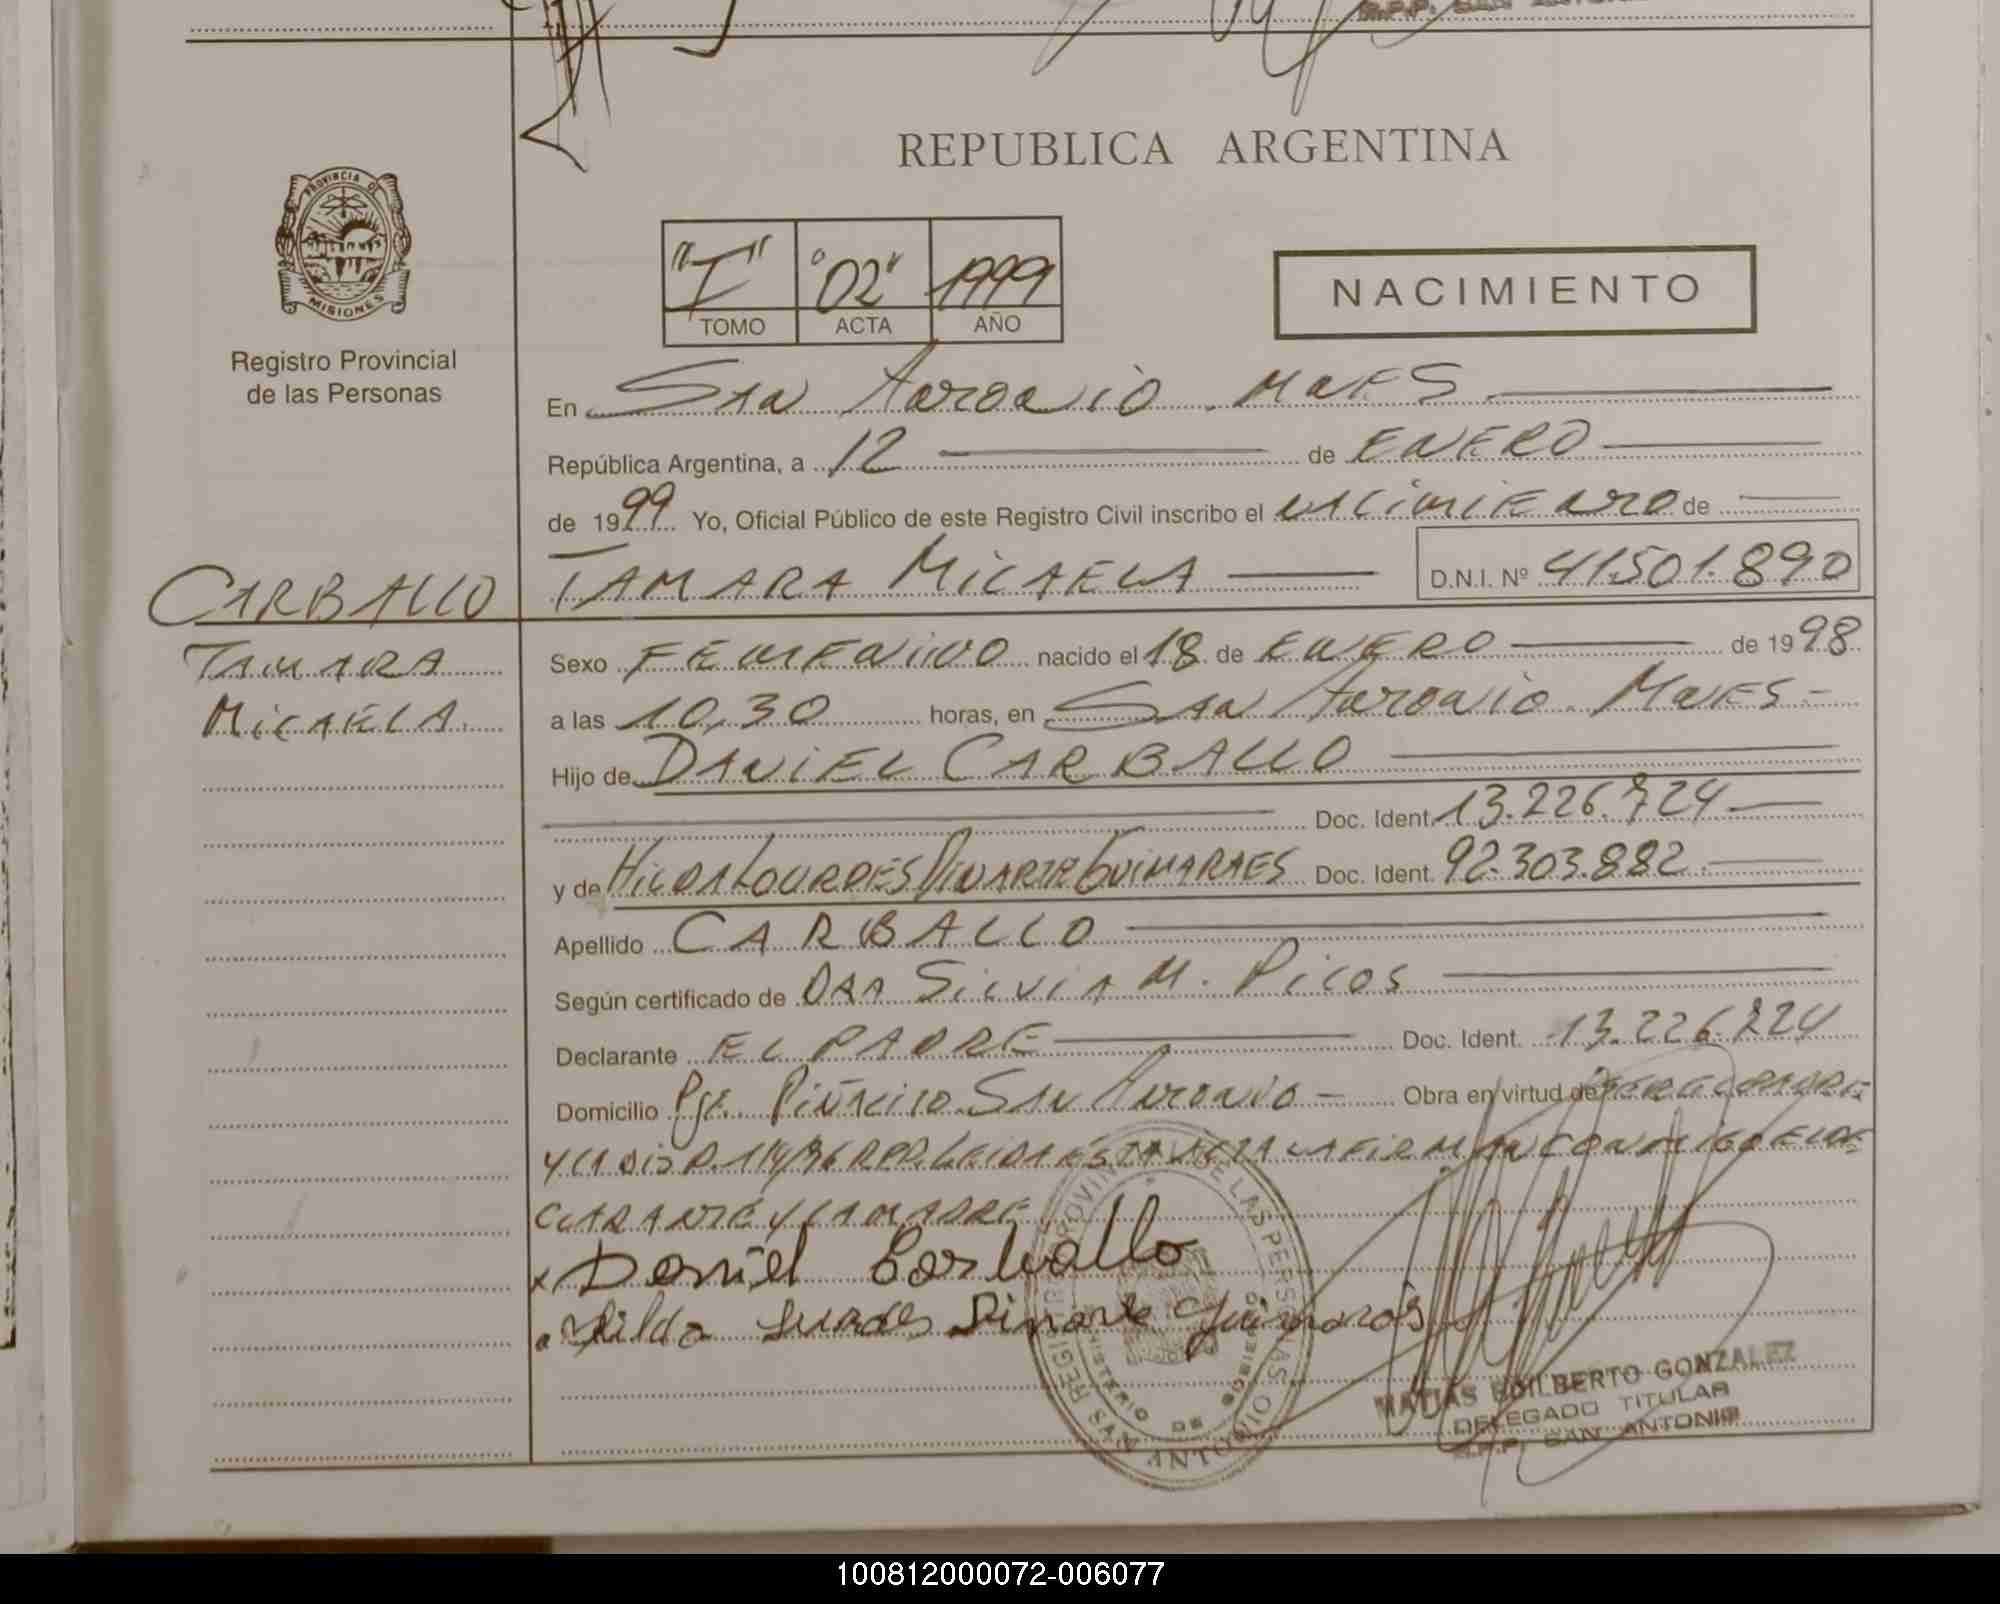 REPUBLICA ARGENTINA
PROVINCIA DE
MISIONES
Registro Provincial
de las Personas
"I" "02" 1999
TOMO ACTA AÑO
NACIMIENTO
En San Antonio Mnes
República Argentina, a 12 de ENERO
de 1999 Yo, Oficial Público de este Registro Civil inscribo el nacimiento de
TAMARA MICAELA D.N.I. Nº 41501.890
CARBALLO
TAMARA
MICAELA.
Sexo FEMENINO nacido el 18 de ENERO de 1998
a las 10,30 horas, en San Antonio Mnes -
Hijo de DANIEL CARBALLO
Doc. Ident. 13.226.724
y de HILDA LOURDES DINARTE GUIMARAES Doc. Ident. 92.303.882
Apellido CARBALLO
Según certificado de DRA SILVIA M. PICOS
Declarante EL PADRE Doc. Ident. 13.226.724
Domicilio Pje. Piñalito San Antonio - Obra en virtud de SER EL PADRE
Y LA DISP. 114/96 RPP. LEIDA ESTA ACTA LA FIRMAN CONMIGO EL DE
CLARANTE Y LA MADRE
x Daniel Carballo
Hilda Lurdes Dinarte Guimarães
REGISTRO PROVINCIAL DE LAS PERSONAS
MINISTERIO DE GOBIERNO
SAN ANTONIO
MATIAS EDILBERTO GONZALEZ
DELEGADO TITULAR
R.P.P. SAN ANTONIO
100812000072-006077